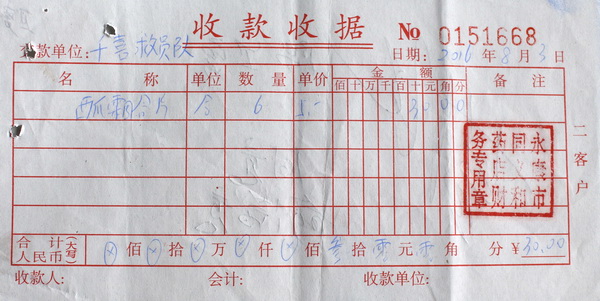 收款收据 No 0151668
交款单位：十喜救员队 日期：2016年8月3日
名称 单位 数量 单价 金额 备注
佰 十 万 千 百 十 元 角 分
西瓜霜含片 合 6 5.- 3 0 0 0
永 市
同 和
药店财
务专用章
二客户
合计人民币(大写) ⊗佰⊗拾⊗万⊗仟⊗佰叁拾零元零角 分 ¥30.00
收款人： 会计： 收款单位：